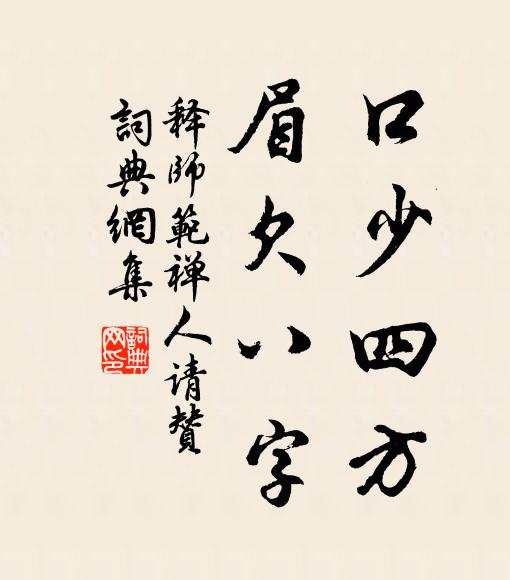 口少四方
眉欠八字
释師範禅人请贊
詞典網集
詞典网印